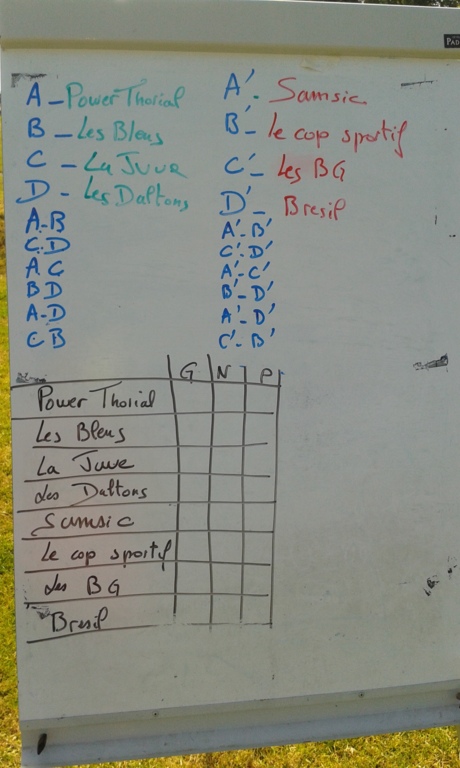 A - Power Thorial
B - Les Bleus
C - La Juve
D - Les Daltons
A-B
C-D
A C
B D
A-D
C B
A' - Samsic
B' - Le cop sportif
C' - Les BG
D' - Bresil
A'-B'
C'-D'
A'-C'
B'-D'
A'-D'
C'-B'
G N P
Power Thorial
Les Bleus
La Juve
Les Daltons
Samsic
Le cop sportif
Les BG
Bresil